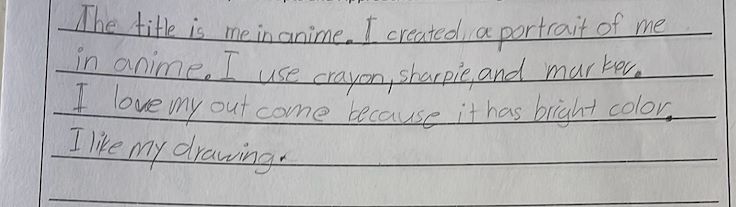 The title is me in anime. I created, a portrait of me
in anime. I use crayon, sharpie, and marker.
I love my out come because it has bright color.
I like my drawing.